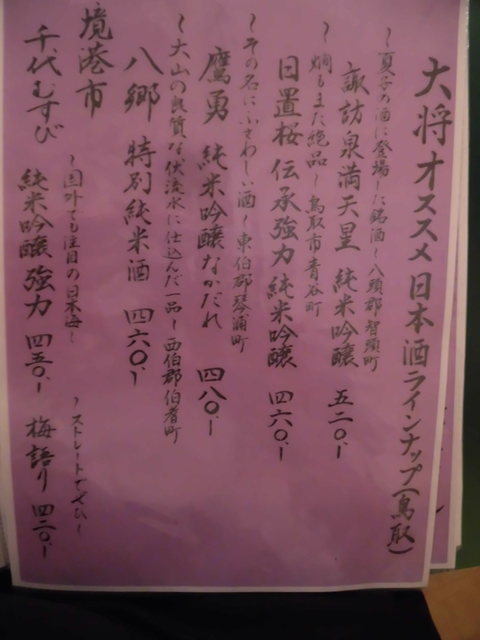 大将オススメ日本酒ラインナップ(鳥取)
～夏子の酒に登場した銘酒～八頭郡智頭町
諏訪泉満天星 純米吟醸 五二〇、-
～燗もまた絶品～鳥取市青谷町
日置桜 伝承強力純米吟醸 四六〇、-
～その名にふさわしい酒～東伯郡琴浦町
鷹勇 純米吟醸なかだれ 四八〇、-
～大山の良質な伏流水に仕込んだ一品～西伯郡伯耆町
八郷 特別純米酒 四六〇、-
境港市
～国外でも注目の日本海～
千代むすび 純米吟醸強力 四五〇、-
～ストレートでぜひ～
梅語り 四二〇、-